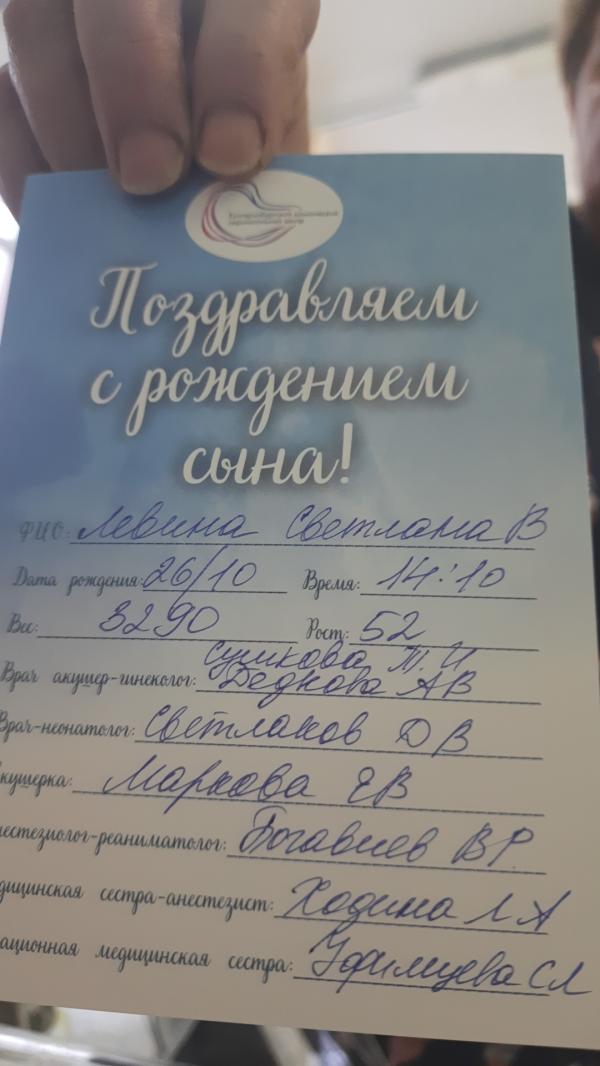 Екатеринбургский клинический
перинатальный центр
Поздравляем
с рождением
сына!
ФИО: Левина Светлана В
Дата рождения: 26/10 Время: 14:10
Вес: 3290 Рост: 52
Сушкова Т. И
Врач акушер-гинеколог: Деднова АВ
Врач-неонатолог: Светлаков ДВ
кушерка: Маркова ЕВ
нестезиолог-реаниматолог: ВР
дицинская сестра-анестезист: Ходина ЛА
ационная медицинская сестра: Уфимцева СЛ